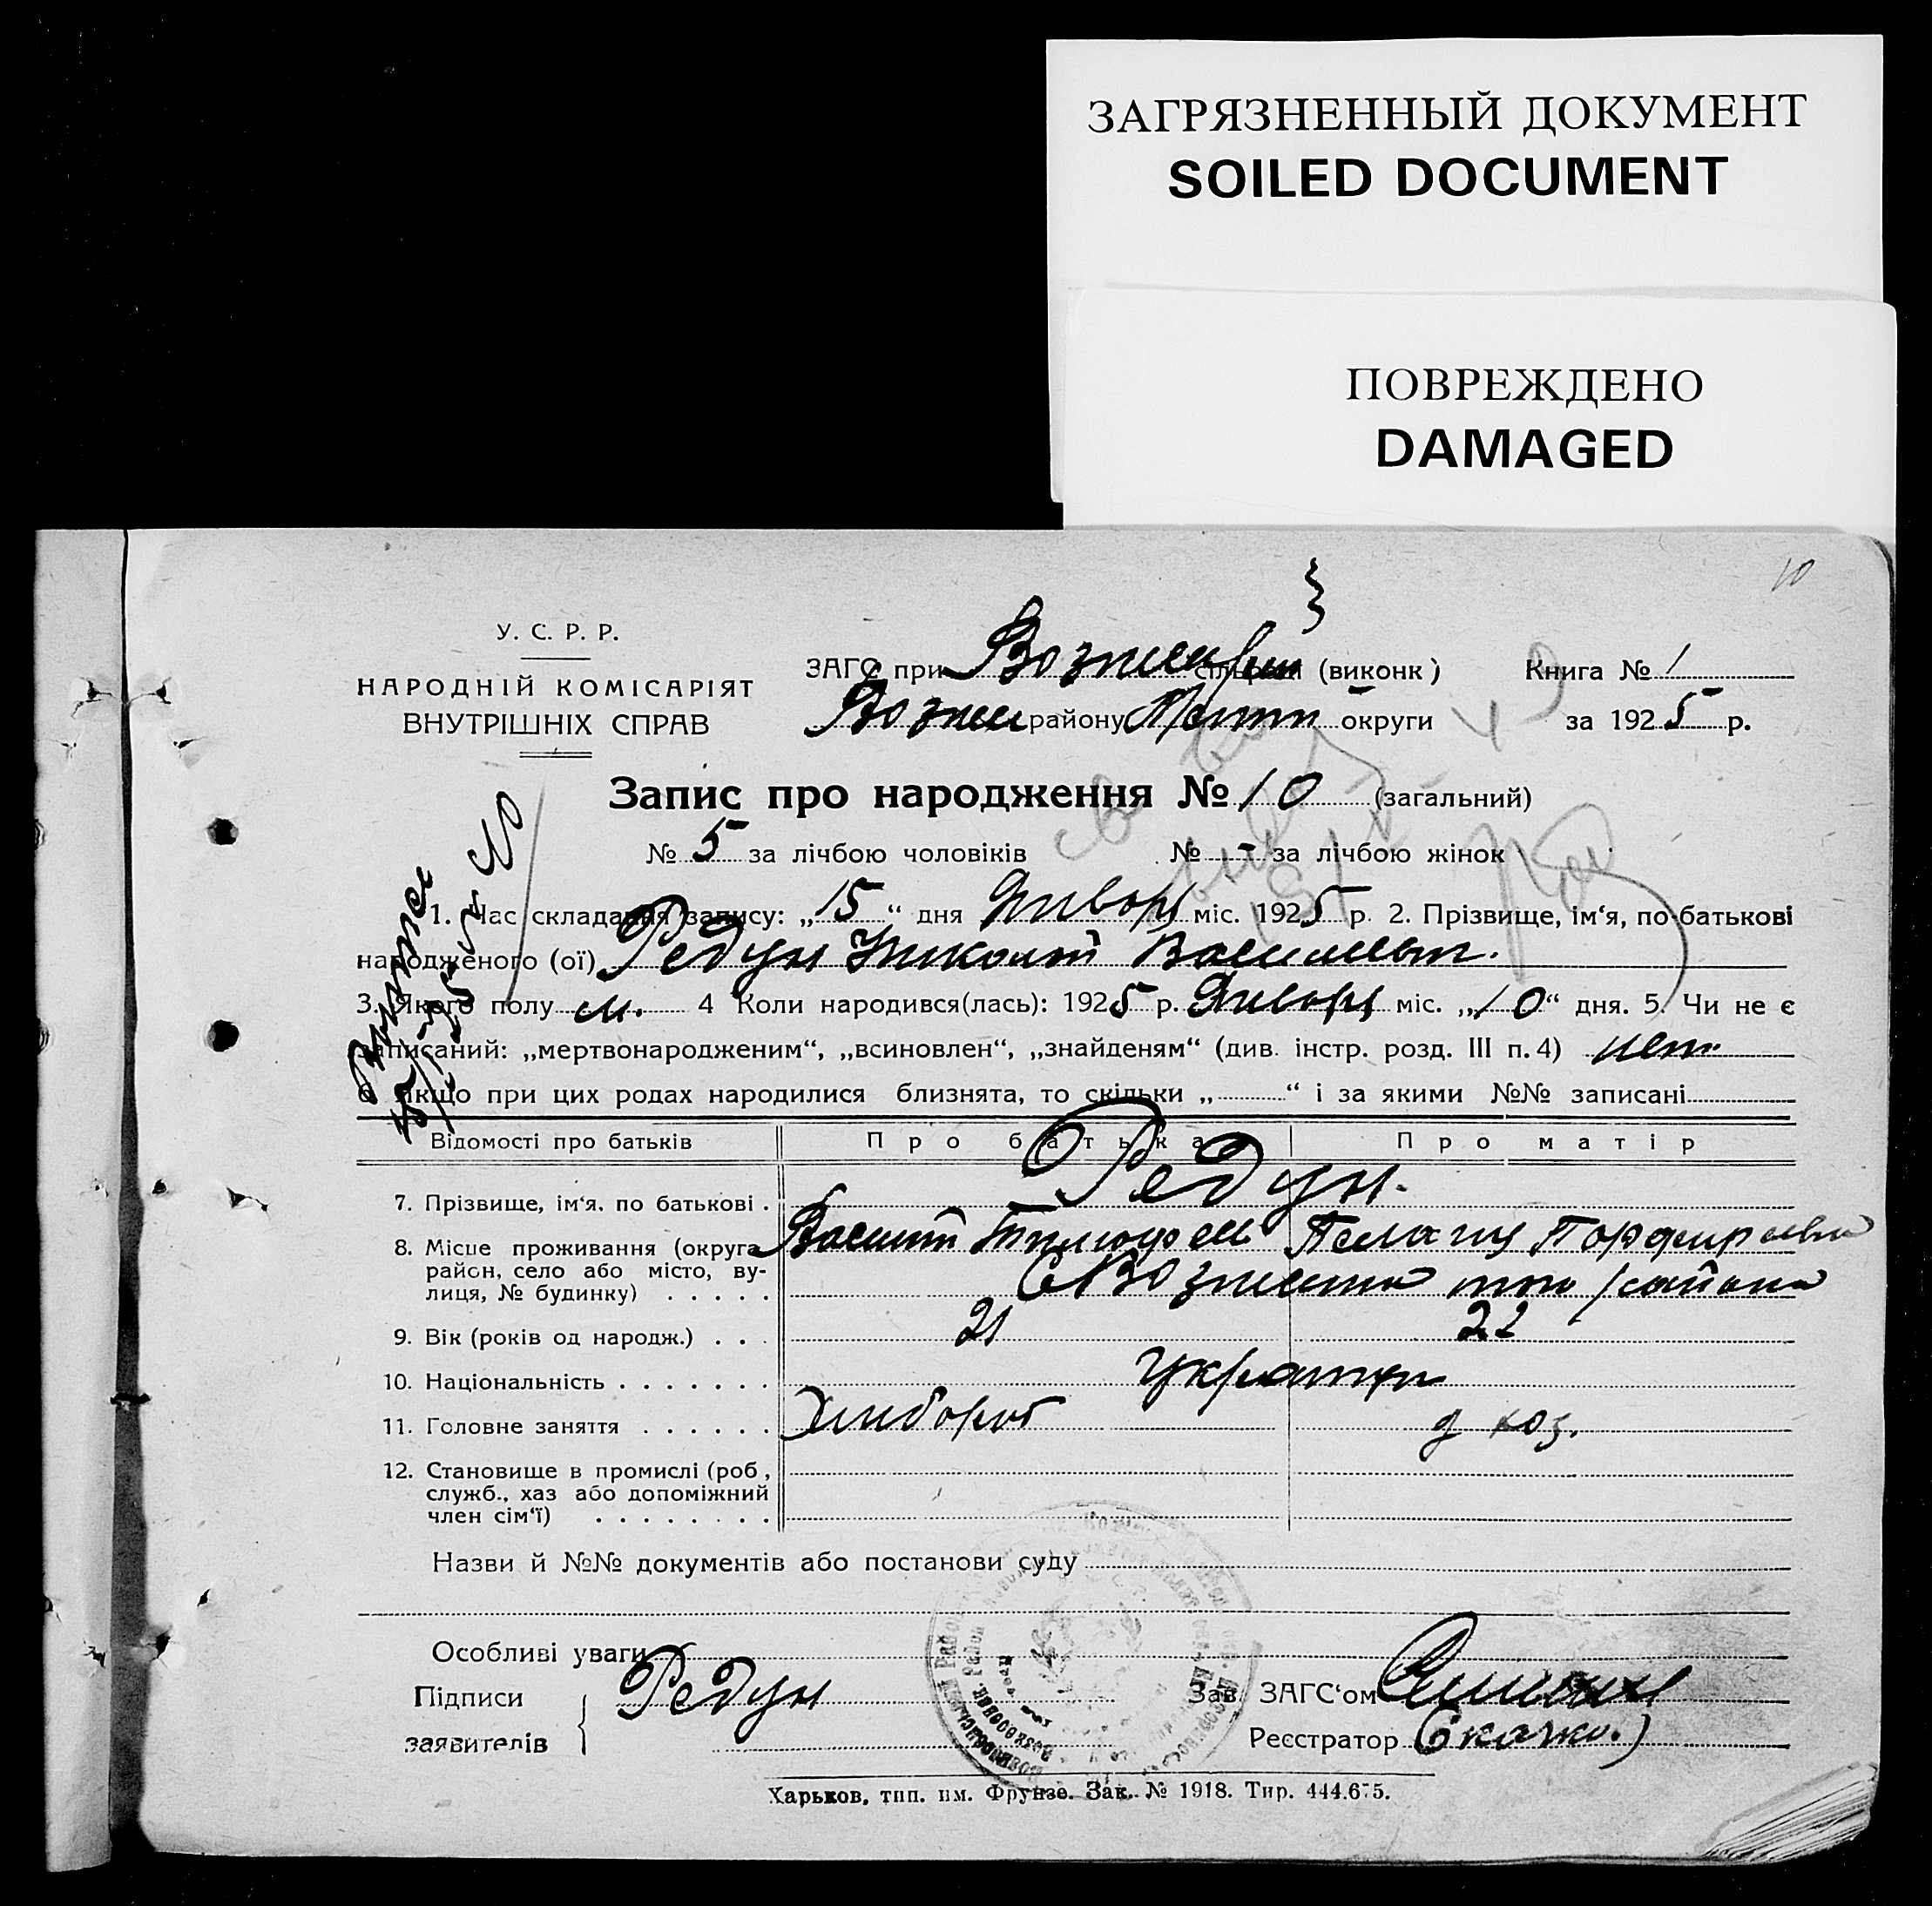 ЗАГРЯЗНЕННЫЙ ДОКУМЕНТ
SOILED DOCUMENT
ПОВРЕЖДЕНО
DAMAGED
10
У. С. Р. Р.
НАРОДНІЙ КОМІСАРІЯТ
ВНУТРІШНІХ СПРАВ
ЗАГС при (виконк)
Книга № 1
району округи
за 1925 р.
Запис про народження № 10 (загальний)
№ 5 за лічбою чоловіків № - за лічбою жінок
1. Час складання запису: „15“ дня Января міс. 1925 р. 2. Прізвище, ім‘я, по батькові
народженого (ої) Редун Николай Васильев.
3. Якого полу м. 4 Коли народився(лась): 1925 р. Января міс. „10“ дня. 5. Чи не є
записаний: „мертвонародженим“, „всиновлен“, „знайденям“ (див. інстр. розд. III п. 4) нет
6. Якщо при цих родах народилися близнята, то скільки „ “ і за якими №№ записані
Відомості про батьків Про батька Про матір
7. Прізвище, ім‘я, по батькові . Редун.
8. Місце проживання (округа Василий Тимофеев Пелагия Порфирьева
район, село або місто, ву-
лиця, № будинку) . . . . . района
9. Вік (років од народж.) . . . 21 22
10. Національність . . . . . . . Украинцы
11. Головне заняття . . . . . . Хлибороб д хоз.
12. Становище в промислі (роб,
служб., хаз або допоміжний
член сім‘ї) . . . . . . . .
Назви й №№ документів або постанови суду
Особливі уваги
Підписи Редун Зав. ЗАГС‘ом
заявителів Реєстратор (Скачко.)
Харьков, тип. им. Фрунзе. Зак. № 1918. Тир. 444.675.